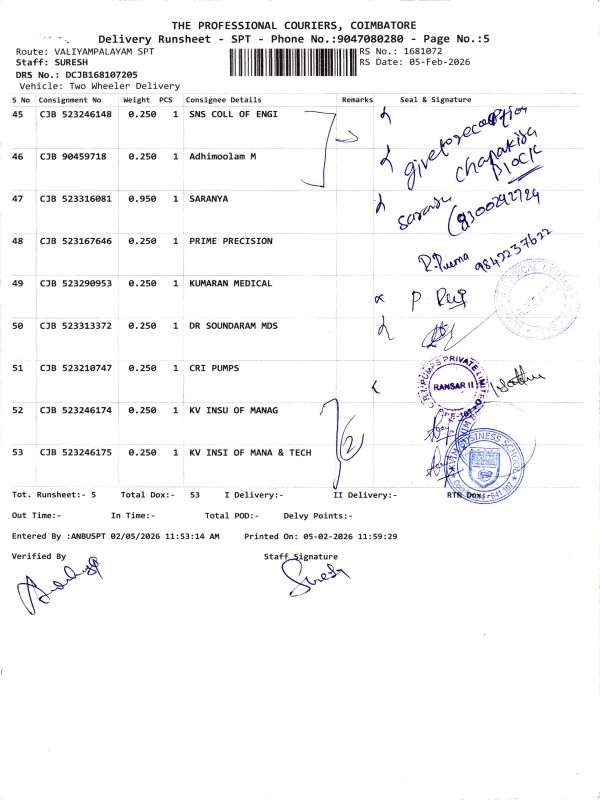 THE PROFESSIONAL COURIERS, COIMBATORE
Delivery Runsheet - SPT - Phone No.:9047080280 - Page No.:5
Route: VALIYAMPALAYAM SPT
RS No.: 1681072
Staff: SURESH
RS Date: 05-Feb-2026
DRS No.: DCJB168107205
Vehicle: Two Wheeler Delivery
S No Consignment No Weight PCS Consignee Details Remarks Seal & Signature
45 CJB 523246148 0.250 1 SNS COLL OF ENGI
give to reception
46 CJB 90459718 0.250 1 Adhimoolam M
block
47 CJB 523316081 0.950 1 SARANYA
48 CJB 523167646 0.250 1 PRIME PRECISION
9842237622
49 CJB 523290953 0.250 1 KUMARAN MEDICAL
50 CJB 523313372 0.250 1 DR SOUNDARAM MDS
51 CJB 523210747 0.250 1 CRI PUMPS
52 CJB 523246174 0.250 1 KV INSU OF MANAG
2
53 CJB 523246175 0.250 1 KV INSI OF MANA & TECH
Tot. Runsheet:- 5 Total Dox:- 53 I Delivery:- II Delivery:- RTN Dox:-
Out Time:- In Time:- Total POD:- Delvy Points:-
Entered By :ANBUSPT 02/05/2026 11:53:14 AM Printed On: 05-02-2026 11:59:29
Verified By Staff Signature
Suresh